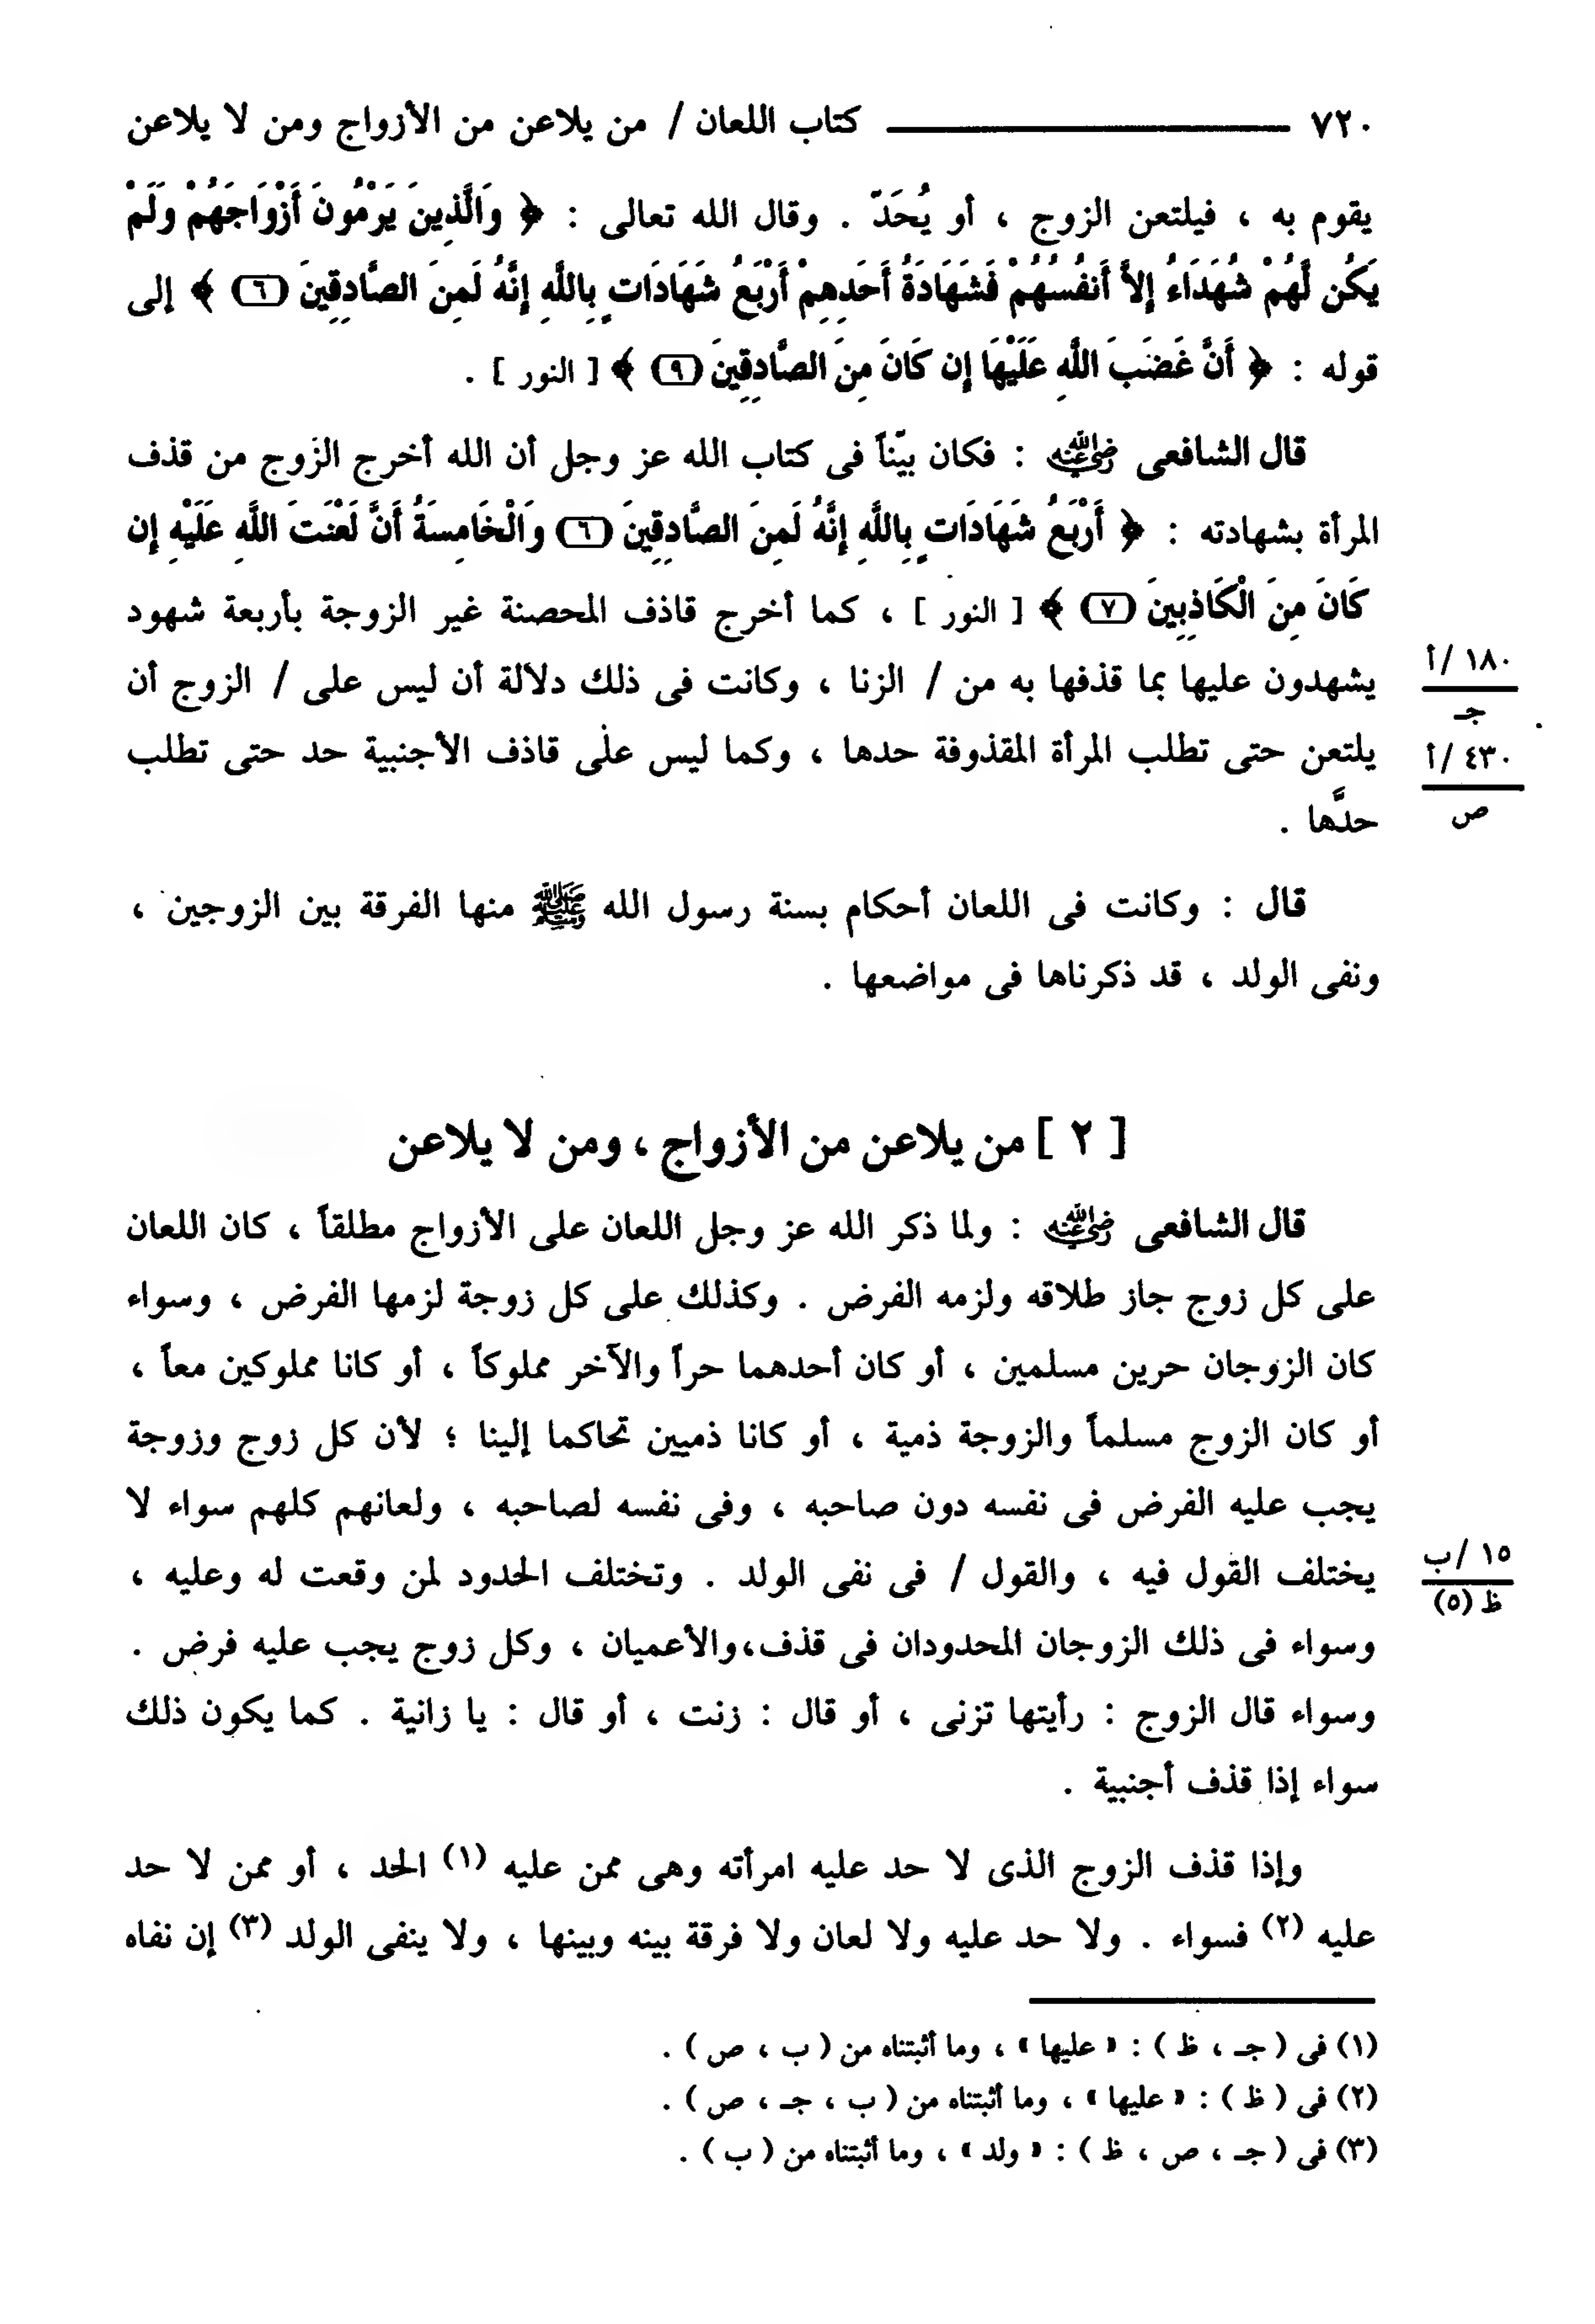 ٧٢٠ ــــــــــــــــ كتاب اللعان / من يلاعن من الأزواج ومن لا يلاعن
يقوم به ، فيلتعن الزوج ، أو يُحَدّ . وقال الله تعالى : ﴿ وَالَّذِينَ يَرْمُونَ أَزْوَاجَهُمْ وَلَمْ
يَكُن لَّهُمْ شُهَدَاءُ إِلاَّ أَنفُسُهُمْ فَشَهَادَةُ أَحَدِهِمْ أَرْبَعُ شَهَادَاتٍ بِاللَّهِ إِنَّهُ لَمِنَ الصَّادِقِينَ (٦) ﴾ إلى
قوله : ﴿ أَنَّ غَضَبَ اللَّهِ عَلَيْهَا إِن كَانَ مِنَ الصَّادِقِينَ (٩) ﴾ [ النور ] .
قال الشافعى رضي الله عنه : فكان بيّناً فى كتاب الله عز وجل أن الله أخرج الزوج من قذف
المرأة بشهادته : ﴿ أَرْبَعُ شَهَادَاتٍ بِاللَّهِ إِنَّهُ لَمِنَ الصَّادِقِينَ (٦) وَالْخَامِسَةُ أَنَّ لَعْنَتَ اللَّهِ عَلَيْهِ إِن
كَانَ مِنَ الْكَاذِبِينَ (٧) ﴾ [ النور ] ، كما أخرج قاذف المحصنة غير الزوجة بأربعة شهود
يشهدون عليها بما قذفها به من / الزنا ، وكانت فى ذلك دلالة أن ليس على / الزوج أن
١٨٠ /أ
جـ
يلتعن حتى تطلب المرأة المقذوفة حدها ، وكما ليس على قاذف الأجنبية حد حتى تطلب
٤٣٠ /أ
ص
حدَّها .
قال : وكانت فى اللعان أحكام بسنة رسول الله ﷺ منها الفرقة بين الزوجين ،
ونفى الولد ، قد ذكرناها فى مواضعها .
[ ٢ ] من يلاعن من الأزواج ، ومن لا يلاعن
قال الشافعى رضي الله عنه : ولما ذكر الله عز وجل اللعان على الأزواج مطلقاً ، كان اللعان
على كل زوج جاز طلاقه ولزمه الفرض . وكذلك على كل زوجة لزمها الفرض ، وسواء
كان الزوجان حرين مسلمين ، أو كان أحدهما حراً والآخر مملوكاً ، أو كانا مملوكين معاً ،
أو كان الزوج مسلماً والزوجة ذمية ، أو كانا ذميين تحاكما إلينا ؛ لأن كل زوج وزوجة
يجب عليه الفرض فى نفسه دون صاحبه ، وفى نفسه لصاحبه ، ولعانهم كلهم سواء لا
يختلف القول فيه ، والقول / فى نفى الولد . وتختلف الحدود لمن وقعت له وعليه ،
١٥ /ب
ظ (٥)
وسواء فى ذلك الزوجان المحدودان فى قذف،والأعميان ، وكل زوج يجب عليه فرض .
وسواء قال الزوج : رأيتها تزنى ، أو قال : زنت ، أو قال : يا زانية . كما يكون ذلك
سواء إذا قذف أجنبية .
وإذا قذف الزوج الذى لا حد عليه امرأته وهى ممن عليه (١) الحد ، أو ممن لا حد
عليه (٢) فسواء . ولا حد عليه ولا لعان ولا فرقة بينه وبينها ، ولا ينفى الولد (٣) إن نفاه
(١) فى ( جـ ، ظ ) : « عليها » ، وما أثبتناه من ( ب ، ص ) .
(٢) فى ( ظ ) : « عليها » ، وما أثبتناه من ( ب ، جـ ، ص ) .
(٣) فى ( جـ ، ص ، ظ ) : « ولد » ، وما أثبتناه من ( ب ) .